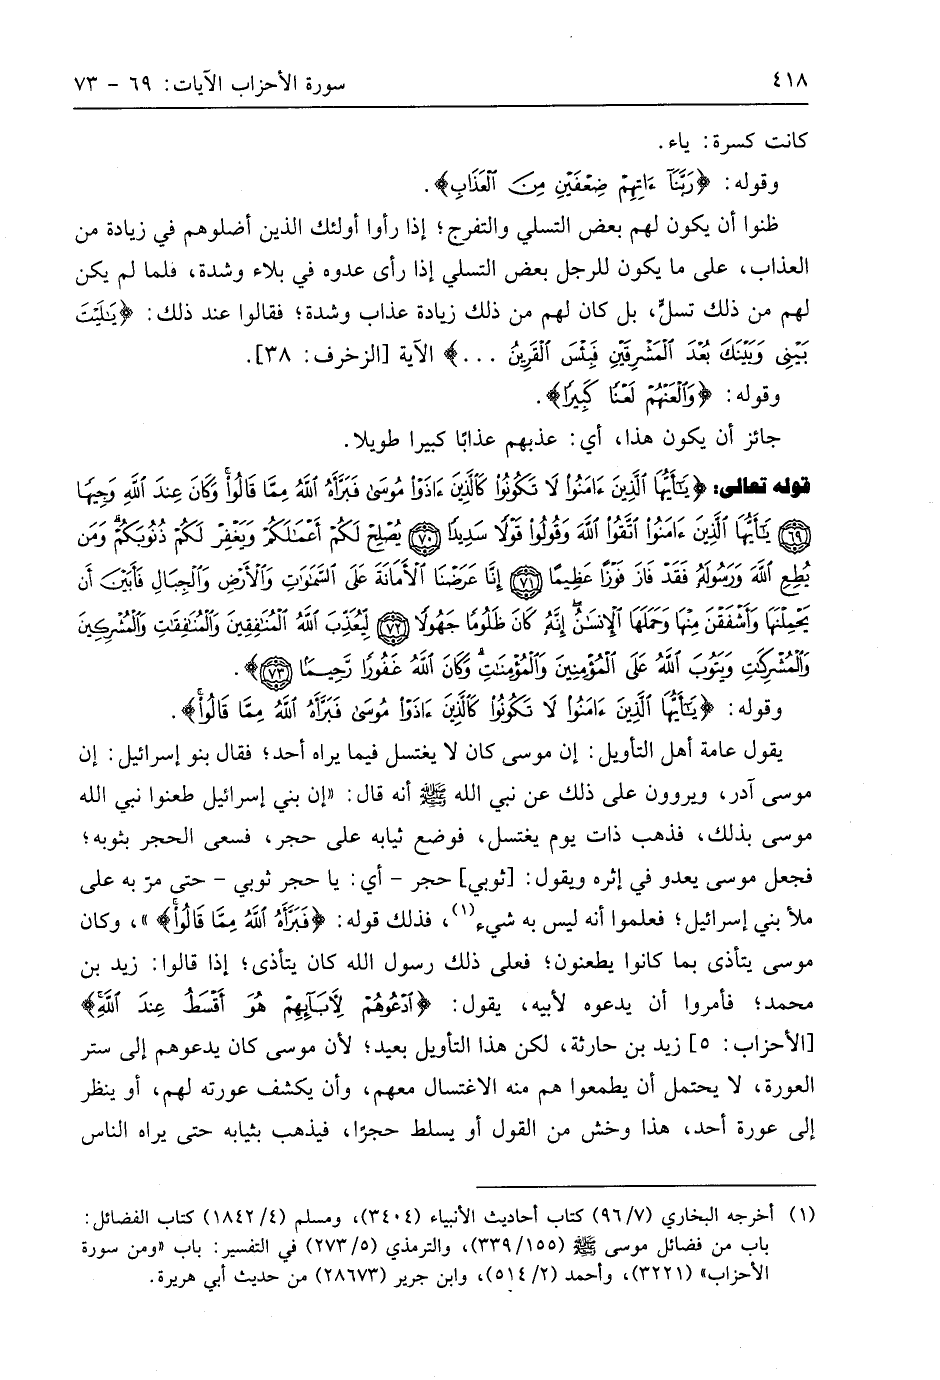 ٤١٨ سورة الأحزاب الآيات: ٦٩ - ٧٣
كانت كسرة: ياء.
وقوله: ﴿رَبَّنَآ ءَاتِهِمْ ضِعْفَيْنِ مِنَ ٱلْعَذَابِ﴾.
ظنوا أن يكون لهم بعض التسلي والتفرج؛ إذا رأوا أولئك الذين أضلوهم في زيادة من
العذاب، على ما يكون للرجل بعض التسلي إذا رأى عدوه في بلاء وشدة، فلما لم يكن
لهم من ذلك تسلٍّ، بل كان لهم من ذلك زيادة عذاب وشدة؛ فقالوا عند ذلك: ﴿يَـٰلَيْتَ
بَيْنِى وَبَيْنَكَ بُعْدَ ٱلْمَشْرِقَيْنِ فَبِئْسَ ٱلْقَرِينُ ...﴾ الآية [الزخرف: ٣٨].
وقوله: ﴿وَٱلْعَنْهُمْ لَعْنًا كَبِيرًا﴾.
جائز أن يكون هذا، أي: عذبهم عذابًا كبيرا طويلا.
قوله تعالى: ﴿يَـٰٓأَيُّهَا ٱلَّذِينَ ءَامَنُوا۟ لَا تَكُونُوا۟ كَٱلَّذِينَ ءَاذَوْا۟ مُوسَىٰ فَبَرَّأَهُ ٱللَّهُ مِمَّا قَالُوا۟ۚ وَكَانَ عِندَ ٱللَّهِ وَجِيهًا
﴿٦٩﴾ يَـٰٓأَيُّهَا ٱلَّذِينَ ءَامَنُوا۟ ٱتَّقُوا۟ ٱللَّهَ وَقُولُوا۟ قَوْلًا سَدِيدًا ﴿٧٠﴾ يُصْلِحْ لَكُمْ أَعْمَـٰلَكُمْ وَيَغْفِرْ لَكُمْ ذُنُوبَكُمْۗ وَمَن
يُطِعِ ٱللَّهَ وَرَسُولَهُۥ فَقَدْ فَازَ فَوْزًا عَظِيمًا ﴿٧١﴾ إِنَّا عَرَضْنَا ٱلْأَمَانَةَ عَلَى ٱلسَّمَـٰوَٰتِ وَٱلْأَرْضِ وَٱلْجِبَالِ فَأَبَيْنَ أَن
يَحْمِلْنَهَا وَأَشْفَقْنَ مِنْهَا وَحَمَلَهَا ٱلْإِنسَـٰنُۖ إِنَّهُۥ كَانَ ظَلُومًا جَهُولًا ﴿٧٢﴾ لِّيُعَذِّبَ ٱللَّهُ ٱلْمُنَـٰفِقِينَ وَٱلْمُنَـٰفِقَـٰتِ وَٱلْمُشْرِكِينَ
وَٱلْمُشْرِكَـٰتِ وَيَتُوبَ ٱللَّهُ عَلَى ٱلْمُؤْمِنِينَ وَٱلْمُؤْمِنَـٰتِۗ وَكَانَ ٱللَّهُ غَفُورًا رَّحِيمًا ﴿٧٣﴾﴾.
وقوله: ﴿يَـٰٓأَيُّهَا ٱلَّذِينَ ءَامَنُوا۟ لَا تَكُونُوا۟ كَٱلَّذِينَ ءَاذَوْا۟ مُوسَىٰ فَبَرَّأَهُ ٱللَّهُ مِمَّا قَالُوا۟ۚ﴾.
يقول عامة أهل التأويل: إن موسى كان لا يغتسل فيما يراه أحد؛ فقال بنو إسرائيل: إن
موسى آدر، ويروون على ذلك عن نبي الله ﷺ أنه قال: «إن بني إسرائيل طعنوا نبي الله
موسى بذلك، فذهب ذات يوم يغتسل، فوضع ثيابه على حجر، فسعى الحجر بثوبه؛
فجعل موسى يعدو في إثره ويقول: [ثوبي] حجر - أي: يا حجر ثوبي - حتى مرّ به على
ملأ بني إسرائيل؛ فعلموا أنه ليس به شيء(١)، فذلك قوله: ﴿فَبَرَّأَهُ ٱللَّهُ مِمَّا قَالُوا۟ۚ﴾»، وكان
موسى يتأذى بما كانوا يطعنون؛ فعلى ذلك رسول الله كان يتأذى؛ إذا قالوا: زيد بن
محمد؛ فأمروا أن يدعوه لأبيه، يقول: ﴿ٱدْعُوهُمْ لِـَٔابَآئِهِمْ هُوَ أَقْسَطُ عِندَ ٱللَّهِۚ﴾
[الأحزاب: ٥] زيد بن حارثة، لكن هذا التأويل بعيد؛ لأن موسى كان يدعوهم إلى ستر
العورة، لا يحتمل أن يطمعوا هم منه الاغتسال معهم، وأن يكشف عورته لهم، أو ينظر
إلى عورة أحد، هذا وخش من القول أو يسلط حجرًا، فيذهب بثيابه حتى يراه الناس
(١) أخرجه البخاري (٩٦/٧) كتاب أحاديث الأنبياء (٣٤٠٤)، ومسلم (١٨٤٢/٤) كتاب الفضائل:
باب من فضائل موسى ﷺ (٣٣٩/١٥٥)، والترمذي (٢٧٣/٥) في التفسير: باب «ومن سورة
الأحزاب» (٣٢٢١)، وأحمد (٥١٤/٢)، وابن جرير (٢٨٦٧٣) من حديث أبي هريرة.